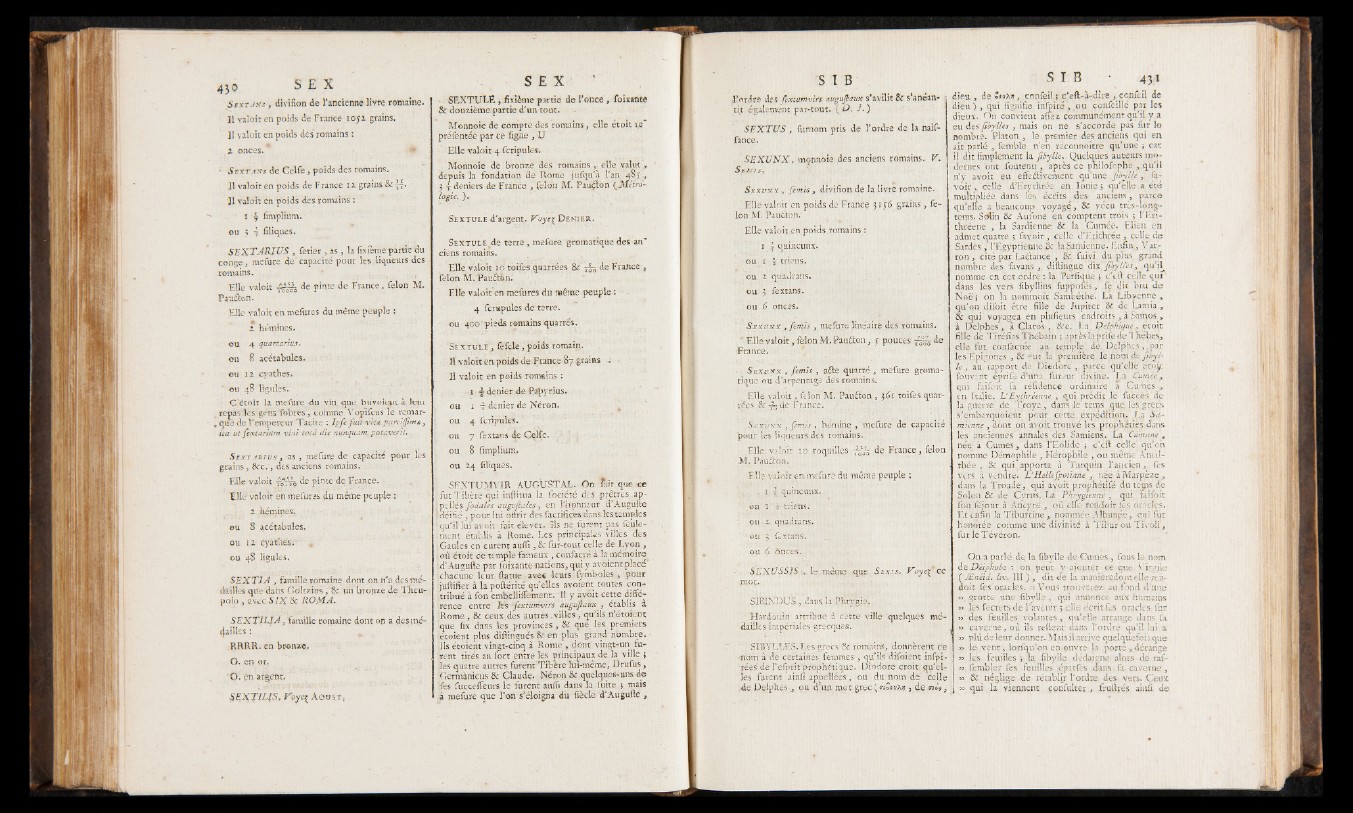 430 SEX
SEXTANS, division de l'ancienne livre romaine.
Il valoit en poids de France 1052 grains.
Il valoit en poids des romains :
2 onces.
SEXTANS de Celse, poids des romains.
Il valoit en poids de France 12 grains &
Il valoit en poids des romains :
1 simplium.
ou 3 siliques.
SEXTARIUS, setier, as, la sixième partie du
conge, mesure de capacité pour les liqueurs des
romains.
Elle valoit de pinte de France, selon M.
Paucton.
Elle valoit en mesures du même peuple :
2 hémines.
ou 4 quartarius.
ou 8 acétabules.
ou 12 cyathes.
ou 48 ligules.
C'étoit la mesure du vin que buvoient à leur
repas les gens sobres, comme Vopiscus le remar-
que de l'empereur Tacite : Ipse fuit vitæ parcissimæ,
ita ut sextarium vini totâ die nunquam potaverit.
SEXTARIUS, as, mesure de capacité pour les
grains, &c., des anciens romains.
Elle valoit de pinte de France.
Elle valoit en mesures du même peuple :
2 hémines.
ou 8 acétabules.
ou 12 cyathes.
ou 48 ligules.
SEXTIA, famille romaine dont on n'a des mé-
dailles que dans Goltzius, & un bronze de Theu-
polo, avec SIX & ROMA.
SEXTILIA, famille romaine dont on a des mé-
dailles :
RRRR. en bronze.
O. en or.
O. en argent.
SEXTILIS. Voyez AOUST,
SEX
SEXTULE, sixième partie de l'once, soixante
& douzième partie d'un tout.
Monnoie de compte des romains, elle étoit re-
présentée par ce signe, U
Elle valoit 4 scripules.
Monnoie de bronze des romains, elle valut,
depuis la fondation de Rome jusqu'à l'an 485,
3 deniers de France, selon M. Paucton (Métro-
logie.).
SEXTULE d'argent. Voyez DENIER.
SEXTULE de terre, mesure gromatique des an-
ciens romains.
Elle valoit 10 toises quarrées & de France,
selon M. Paucton.
Elle valoit en mesures du même peuple :
4 scrupules de terre.
ou 400 pieds romains quarrés.
SEXTULE, sescle, poids romain.
Il valoit en poids de France 87 grains
Il valoit en poids romains :
1 denier de Papyrius.
ou 1 denier de Néron.
ou 4 scripules.
ou 7 sextans de Celse.
ou 8 simplium.
ou 24 siliques.
SEXTUMVIR AUGUSTAL. On sait que ce
fut Tibère qui institua la société des prêtres ap-
pellés sodales augustales, en l'honneur d'Auguste
déifié, pour lui offrir des sacrifices dans les temples
qu'il lui avoit fait élever. Ils ne furent pas seule-
ment établis à Rome. Les principales villes des
Gaules en eurent aussi, & sur-tout celle de Lyon,
où étoit ce temple fameux, consacré à la mémoire
d'Auguste par soixante nations, qui y avoient placé
chacune leur statue avec leurs symboles, pour
justifier à la postérité qu'elles avoient toutes con-
tribué à son embellissement. Il y avoit cette diffé-
rence entre les sextumvirs augustaux, établis à
Rome, & ceux des autres villes, qu'ils n'étoient
que six dans les provinces, & que les premiers
étoient plus distingués & en plus grand nombre.
Ils étoient vingt-cinq à Rome, dont vingt-un fu-
rent tirés au sort entre les principaux de la ville ;
les quatre autres furent Tibère lui-même, Drusus,
Germanicus & Claude. Néron & quelques-uns de
ses successeurs le furent aussi dans la suite ; mais
à mesure que l'on s'éloigna du siècle d'Auguste,
SIB
l'ordre des sextumvirs augustaux s'avilit & s'anéan-
tit également par-tout. (D. J.)
SEXTUS, surnom pris de l'ordre de la nais-
sance.
SEXUNX, monnoie des anciens romains. V.
SEMIS.
SEXUNX, semis, division de la livre romaine.
Elle valoit en poids de France 3156 grains, se-
lon M. Paucton.
Elle valoit en poids romains :
1 quincunx.
ou 1 triens.
ou 2 quadrans.
ou 3 sextans.
ou 6 onces.
SEXUNX, semis, mesure linéaire des romains.
Elle valoit, selon M. Paucton, 5 pouces de
France.
SEXUNX, semis, acte quarré, mesure groma-
tique ou d'arpentage des romains.
Elle valoit, selon M. Paucton, 361 toises quar-
rées & de France.
SEXUNX, semis, hémine, mesure de capacité
pour les liqueurs des romains.
Elle valoit 10 roquilles de France, selon
M. Paucton.
Elle valoit en mesure du même peuple :
1 quincunx.
ou 1 triens.
ou 2 quadrans.
ou 3 sextans.
ou 6 onces.
SEXUSSIS, le même que SEXIS. Voyez ce
mot.
SIBINDUS, dans la Phrygie.
Hardouin attribue à cette ville quelques mé-
dailles impériales grecques.
SIBYLLES. Les grecs & romains, donnèrent ce
nom à de certaines femmes, qu'ils disoient inspi-
rées de l'esprit prophétique. Diodore croit qu'el-
les furent ainsi appellées, ou du nom de celle
de Delphes, ou d'un mot grec ( , de σιός,
SIB 431
dieu, de βουλη, conseil ; c'est-à-dire, conseil de
dieu), qui signifie inspiré, ou conseillé par les
dieux. On convient assez communément qu'il y a
eu des sibylles, mais on ne s'accorde pas sur le
nombre. Platon, le premier des anciens qui en
ait parlé, semble n'en reconnoître qu'une ; car
il dit simplement la sibylle. Quelques auteurs mo-
dernes ont soutenu, après ce philosophe, qu'il
n'y avoit eu effectivement qu'une sibylle, sa-
voir, celle d'Erythrée en Ionie ; qu'elle a été
multipliée dans les écrits des anciens, parce
qu'elle a beaucoup voyagé, & vécu très-long-
tems. Solin & Ausone en comptent trois ; l'Eri-
thréene, la Sardienne & la Cumée. Elien en
admet quatre ; savoir, celle d'Erithrée, celle de
Sardes, l'Egyptienne & la Samienne. Enfin, Var-
ron, cité par Lactance, & suivi du plus grand
nombre des savans, distingue dix sibylles, qu'il
nomme en cet ordre : la Persique ; c'est celle qui
dans les vers sibyllins supposés, se dit bru de
Noë ; on la nommoit Sambéthe. La Libyenne,
qu'on disoit être fille de Jupiter & de Lamia,
& qui voyagea en plusieurs endroits, à Samos,
à Delphes, à Claros, &c. La Delphique, étoit
fille de Tirésias Thébain ; après la prise de Thebes,
elle fut consacrée au temple de Delphes, par
les Epigones, & eut la première le nom de sibyl-
le, au rapport de Diodore, parce qu'elle étoit
souvent éprise d'une fureur divine. La Cumée,
qui faisoit sa résidence ordinaire à Cumes,
en Italie. L'Erythréenne, qui prédit le succès de
la guerre de Troye, dans le tems que les grecs
s'embarquoient pour cette expédition. La Sa-
mienne, dont on avoit trouvé les prophéties dans
les anciennes annales des Samiens. La Cumane,
née à Cumes, dans l'Eolide ; c'est celle qu'on
nomme Démophile, Hérophile, ou même Amal-
thée, & qui apporta à Tarquin l'ancien, ses
vers à vendre. L'Hellespontine, née à Marpèze,
dans la Troade, qui avoit prophétisé du tems de
Solon & de Cyrus. La Phrygienne, qui faisoit
son séjour à Ancyre, où elle rendoit ses oracles.
Et enfin la Tiburtine, nommée Albunée, qui fut
honorée comme une divinité à Tibur ou Tivoli,
sur le Téveron.
On a parlé de la sibylle de Cumes, sous le nom
de Deïphobe : on peut y ajouter ce que Virgile
(Ænéid. liv. III), dit de la manière dont elle ren-
doit ses oracles. « Vous trouverez au fond d'une
» grotte une sibylle, qui annonce aux humains
» les secrets de l'avenir ; elle écrit ses oracles sur
» des feuilles volantes, qu'elle arrange dans sa
» caverne, où ils restent dans l'ordre qu'il lui a
» plû de leur donner. Mais il arrive quelquefois que
» le vent, lorsqu'on en ouvre la porte, dérange
» les feuilles ; la sibylle dédaigne alors de ras-
» sembler ses feuilles éparses dans sa caverne,
» & néglige de rétablir l'ordre des vers. Ceux
» qui la viennent consulter, frustrés ainsi de